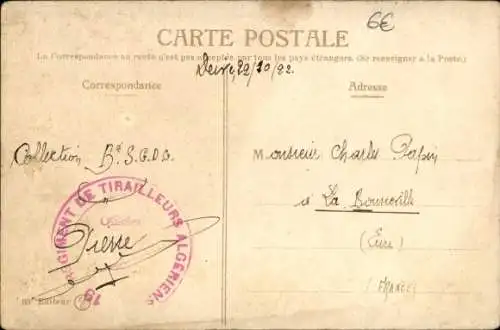 6€
CARTE POSTALE
La Correspondance au recto n'est pas acceptée par tous les pays étrangers. (Se renseigner à la Poste.)
22/10/22
Correspondance
Adresse
Collection B. S.G.D.G.
Monsieur Charles Papin
à La Bonneville
(Eure)
FRANCE
RÉGIMENT DE TIRAILLEURS ALGÉRIENS
Pierre
Editeur